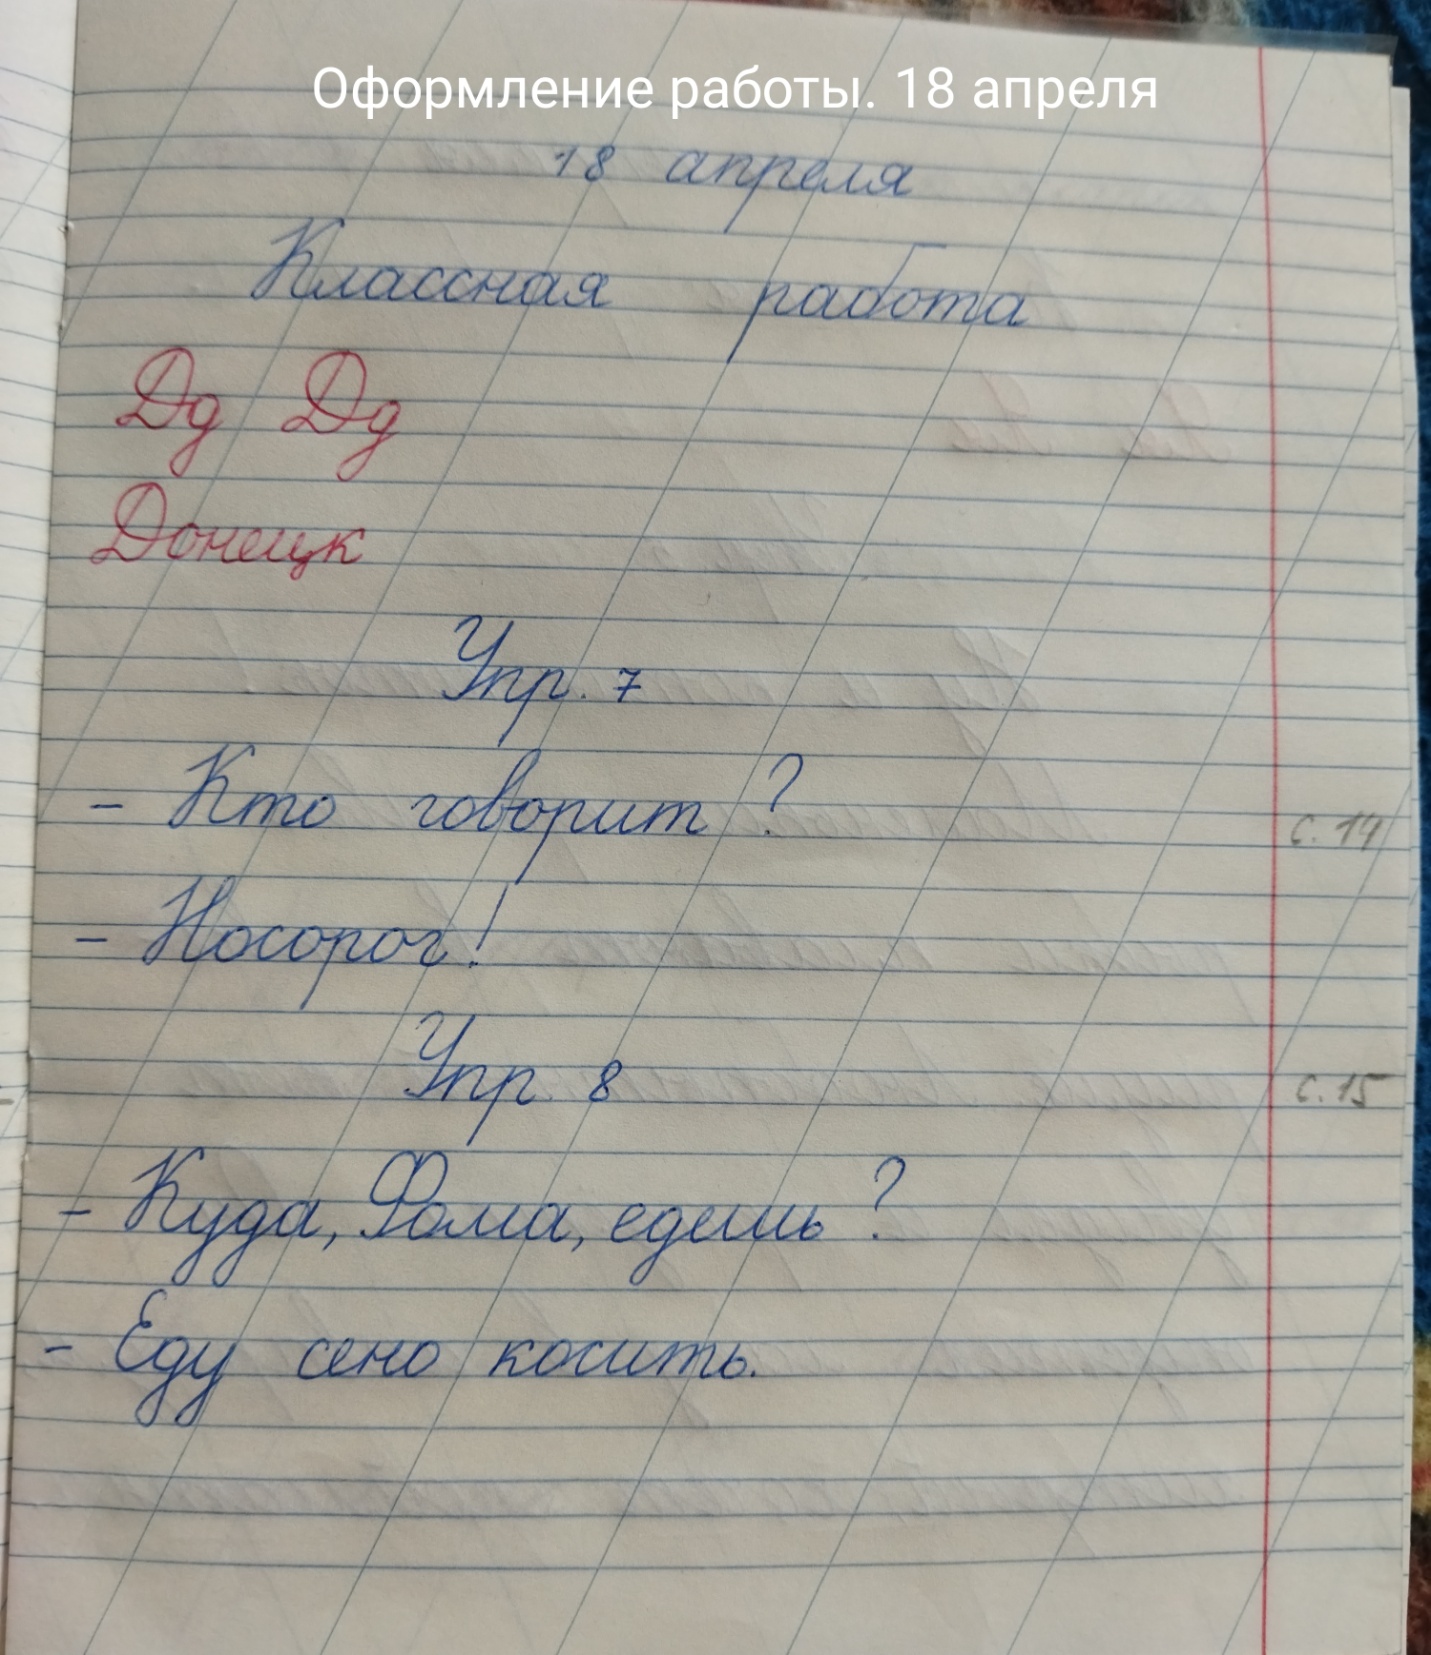 Оформление работы. 18 апреля
18 апреля
Классная работа
Дд Дд
Донецк
Упр. 7
- Кто говорит? с. 14
- Носорог!
Упр. 8 с. 15
- Куда, Фома, едешь?
- Еду сено косить.